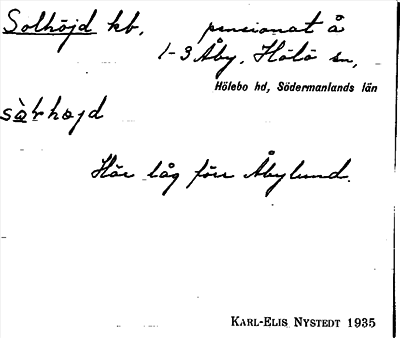 Solhöjd kb. pensionat å
1-3 Åby, Hölö sn,
Hölebo hd, Södermanlands län
sò̀rhøjd
Här låg förr Åbylund.
KARL-ELIS NYSTEDT 1935